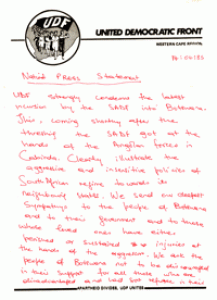 UDF
UNITED DEMOCRATIC FRONT
WESTERN CAPE REGION
Press Statement
UDF strongly condemns the latest
incursion by the SADF into Botswana.
This, coming shortly after the
thrashing the SADF got at the
hands of the Angolan forces in
Cabinda. Clearly illustrate the
aggressive and insensitive policies of
South African regime towards its
neighbouring States. We send our deepest
Sympathy to the people of Botswana
and to their government and to those
whose loved ones have either
perished or sustained injuries at
the hands of the aggressor. We ask the
people of Botswana not to be discouraged
in their support for all those who are
disadvantaged and had
APARTHEID DIVIDES, UDF UNITES